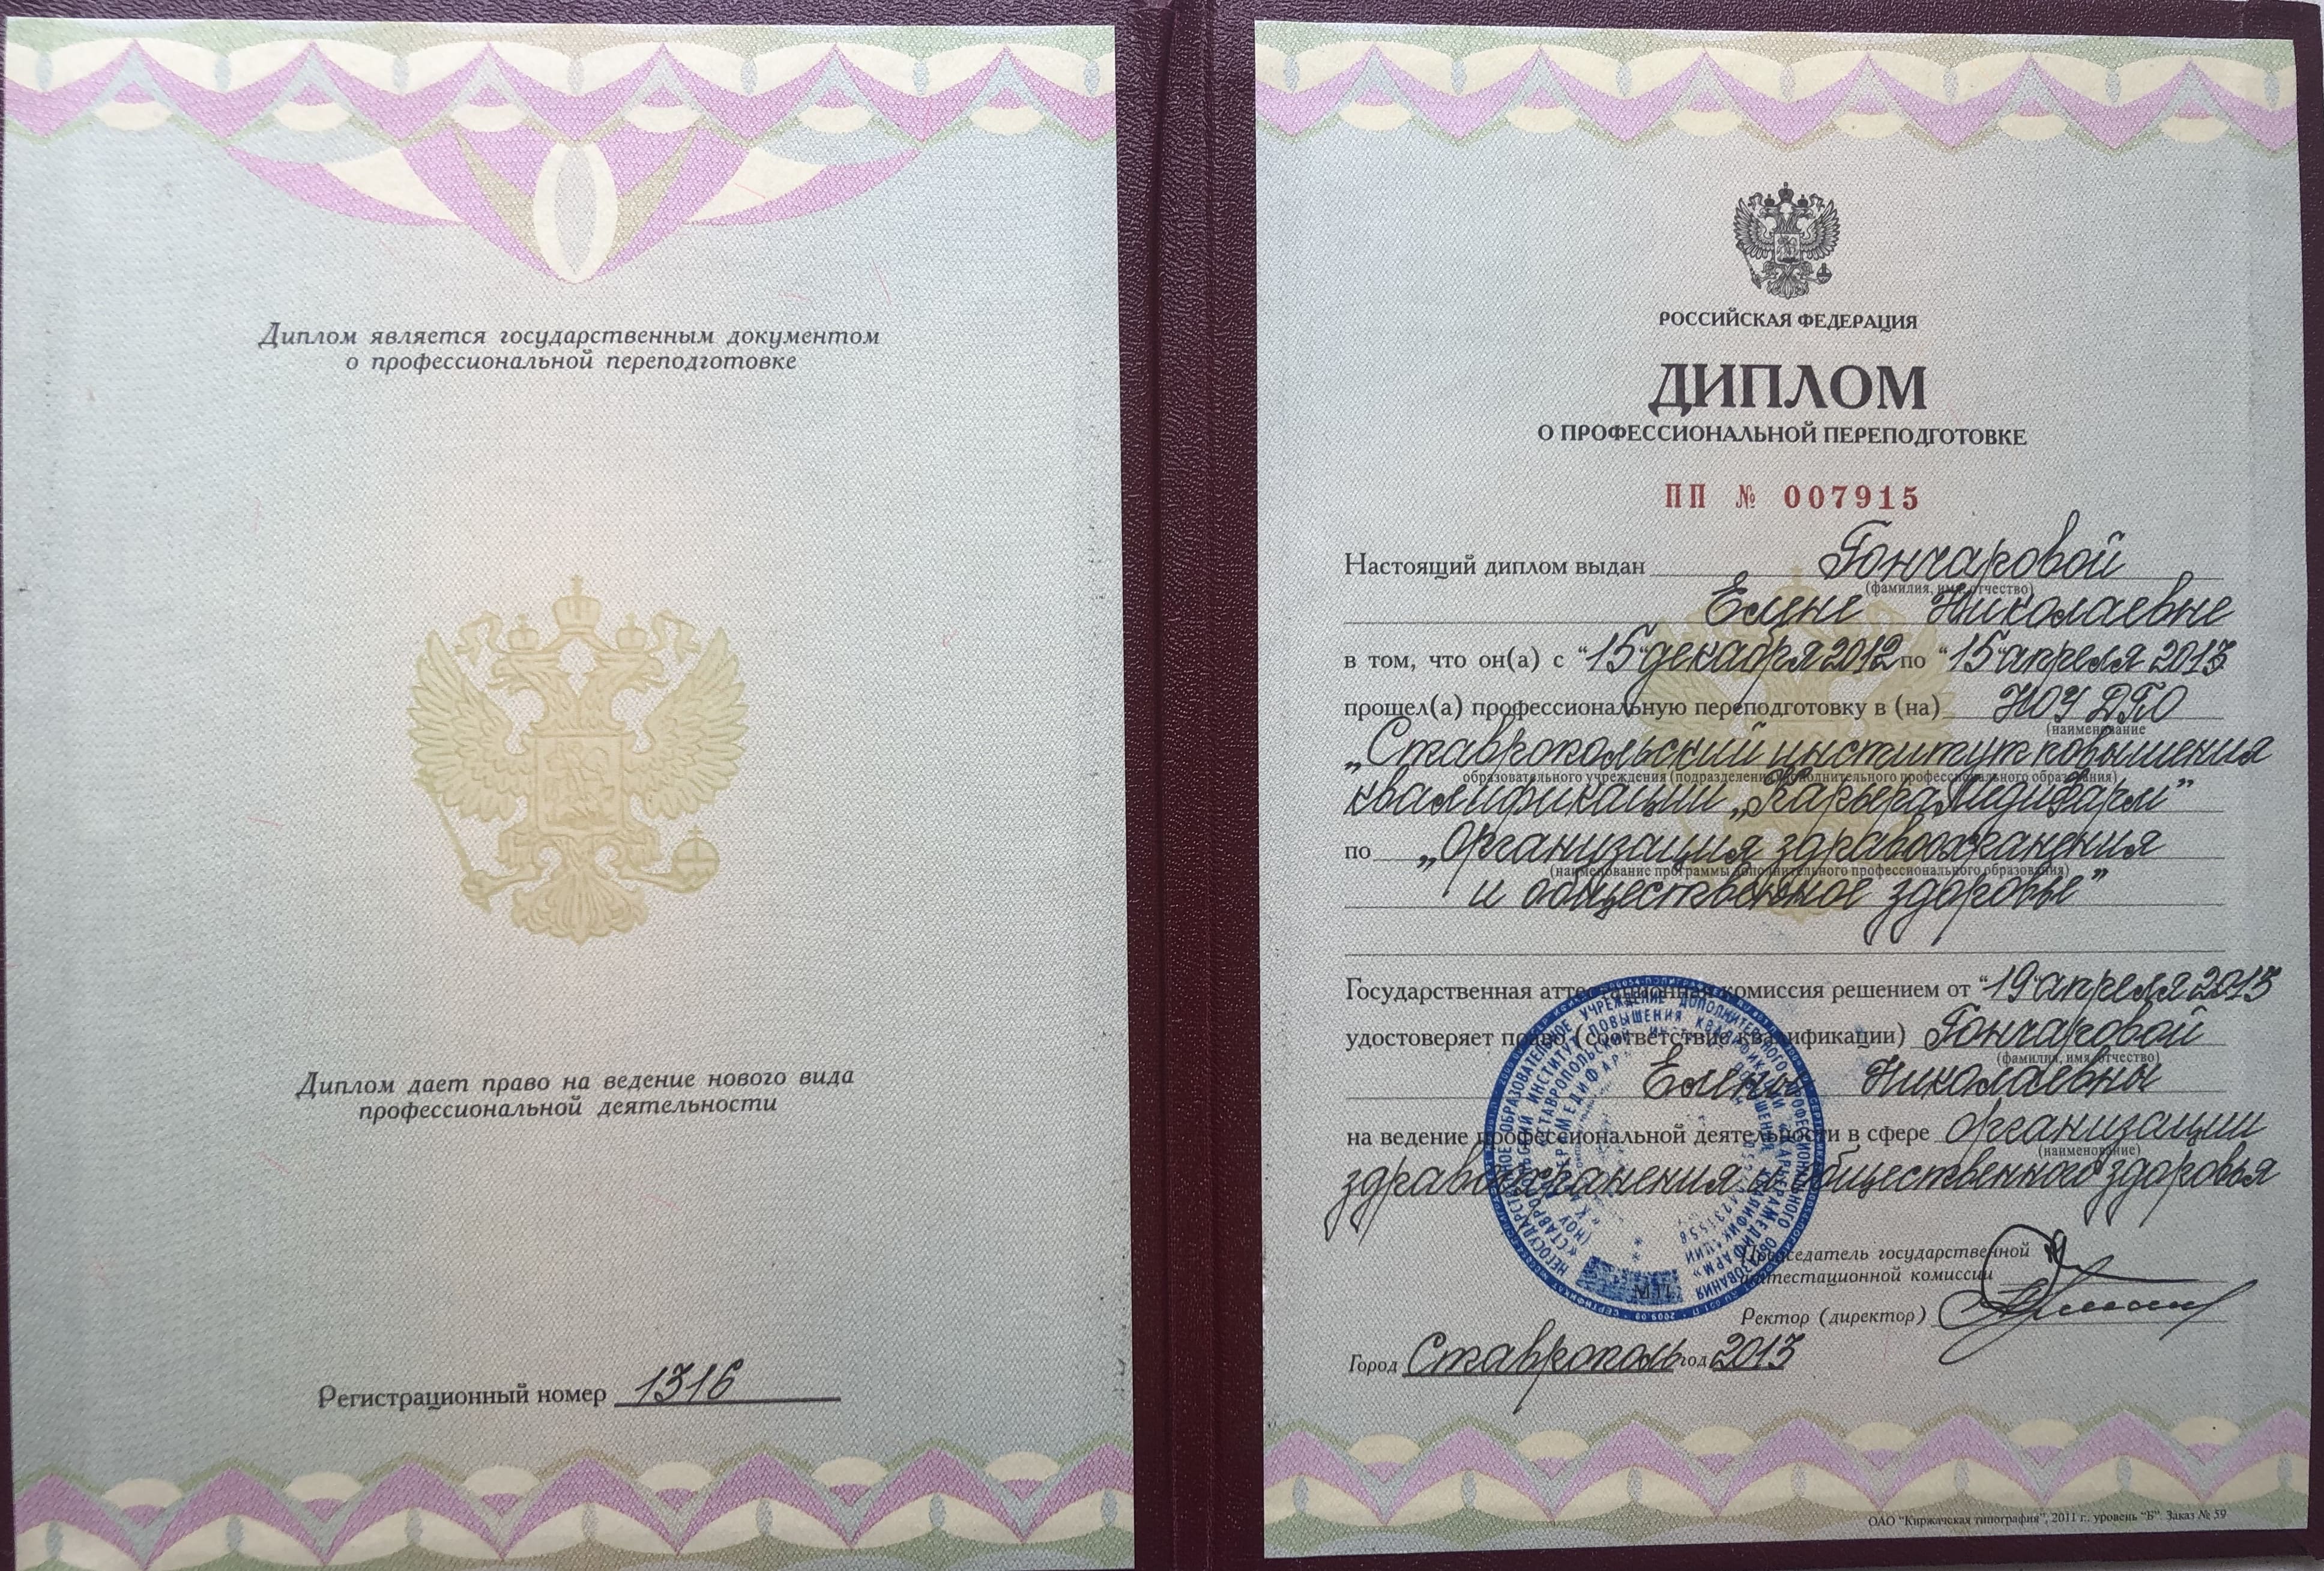 Диплом является государственным документом
о профессиональной переподготовке
Диплом дает право на ведение нового вида
профессиональной деятельности
Регистрационный номер 1316
РОССИЙСКАЯ ФЕДЕРАЦИЯ
ДИПЛОМ
О ПРОФЕССИОНАЛЬНОЙ ПЕРЕПОДГОТОВКЕ
ПП № 007915
Настоящий диплом выдан Гончаровой
(фамилия, имя, отчество)
Елене Николаевне
в том, что он(а) с "15" декабря 2012 по "15" апреля 2013
прошел(а) профессиональную переподготовку в (на) НОУ ДПО
(наименование
„Ставропольский институт повышения
образовательного учреждения (подразделения) дополнительного профессионального образования)
квалификации „КарьераМедиФарм"
по „Организация здравоохранения
(наименование программы дополнительного профессионального образования)
и общественное здоровье"
Государственная аттестационная комиссия решением от "19" апреля 2013
удостоверяет право (соответствие квалификации) Гончаровой
(фамилия, имя, отчество)
Елены Николаевны
на ведение профессиональной деятельности в сфере организации
(наименование)
здравоохранения и общественного здоровья
НЕГОСУДАРСТВЕННОЕ ОБРАЗОВАТЕЛЬНОЕ УЧРЕЖДЕНИЕ ДОПОЛНИТЕЛЬНОГО ПРОФЕССИОНАЛЬНОГО ОБРАЗОВАНИЯ
«СТАВРОПОЛЬСКИЙ ИНСТИТУТ ПОВЫШЕНИЯ КВАЛИФИКАЦИИ «КАРЬЕРАМЕДИФАРМ»
М.П.
Председатель государственной
аттестационной комиссии
Ректор (директор)
Город Ставрополь год 2013
ОАО "Киржачская типография", 2011 г., уровень "Б". Заказ № 59